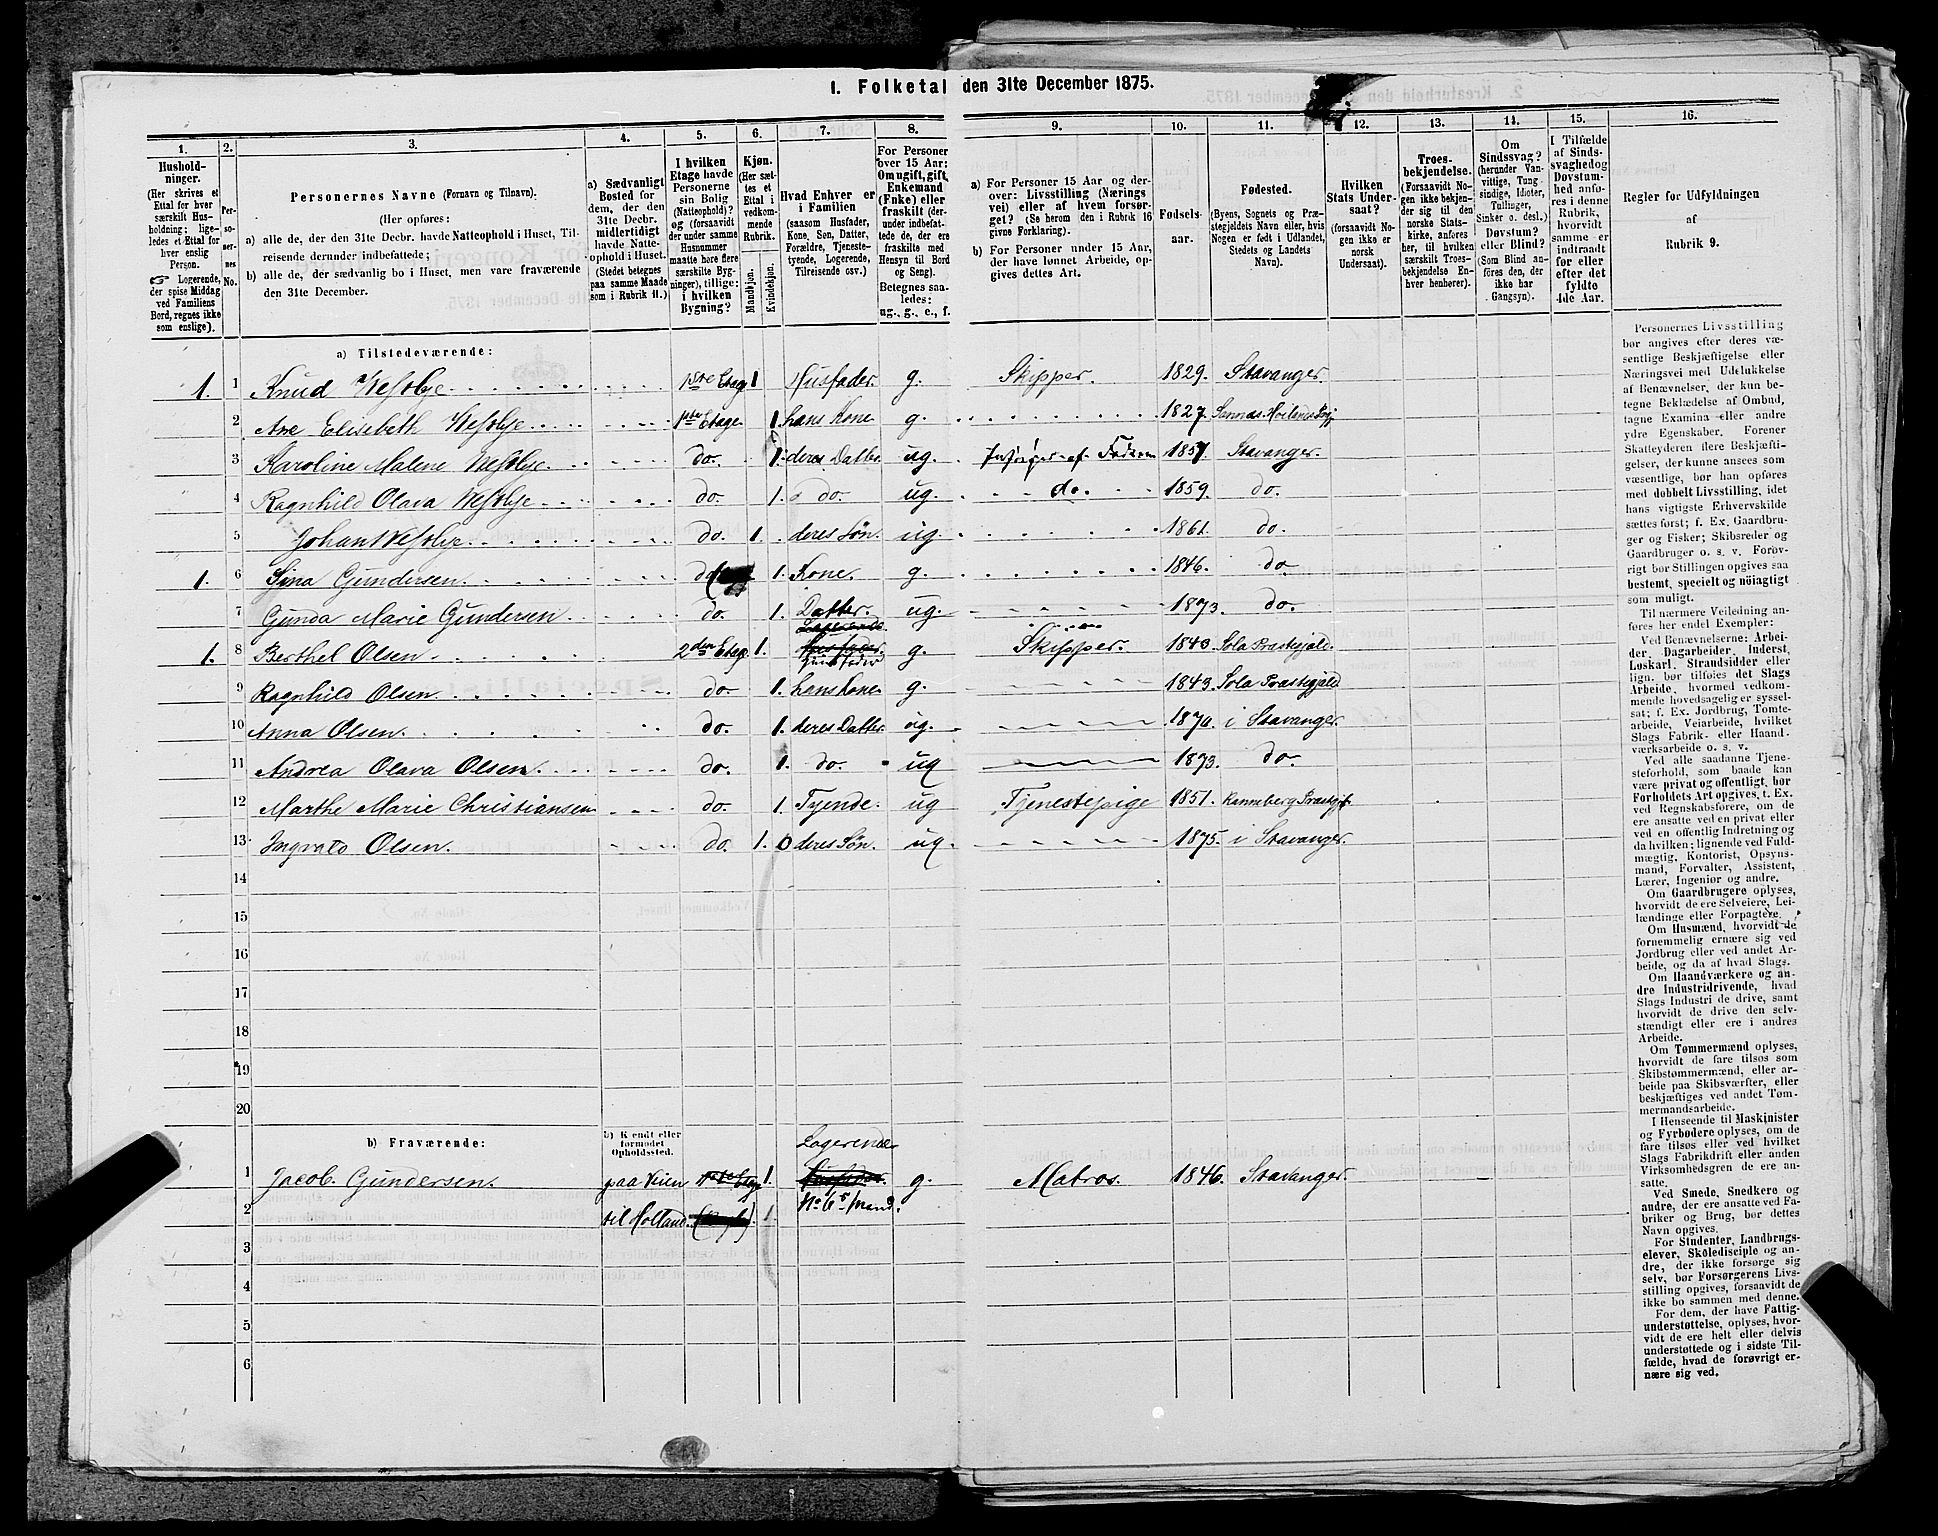 1. Folketal den 31te December 1875.
1. 2. 3. 4. 5. 6. 7. 8. 9. 10. 11. 12. 13. 14. 15. 16.
Hushold-
ninger.
(Her skrives et
Ettal for hver
særskilt Hus-
holdning; lige-
ledes et Ettal for
hver enslig
Person.
Logerende,
der spise Middag
ved Familiens
Bord, regnes ikke
som enslige).
Per-
so-
ner-
nes
No.
Personernes Navne (Fornavn og Tilnavn).
(Her opføres:
a) alle de, der den 31te Decbr. havde Natteophold i Huset, Til-
reisende derunder indbefattede;
b) alle de, der sædvanlig bo i Huset, men vare fraværende
den 31te December.
a) Sædvanligt
Bosted for
dem, der den
31te Decbr.
midlertidigt
havde Natte-
ophold i Huset.
(Stedet betegnes
paa samme Maade
som i Rubrik 11.)
I hvilken
Etage havde
Personerne
sin Bolig
(Natteophold)?
og (forsaavidt
der under samme
Husnummer
maatte høre flere
særskilte Byg-
ninger), tillige:
i hvilken
Bygning?
Kjøn.
(Her sæt-
tes et
Ettal i
vedkom-
mende
Rubrik.
Mandkjøn.
Kvindekjøn.
Hvad Enhver er
i Familien
(saasom Husfader,
Kone, Søn, Datter,
Forældre, Tjeneste-
tyende, Logerende,
Tilreisende osv.)
For Personer
over 15 Aar:
Om ugift, gift,
Enkemand
(Enke) eller
fraskilt (der-
under indbefat-
tede de, der ere
fraskilte med
Hensyn til Bord
og Seng).
Betegnes saa-
ledes:
ug., g., e., f.
a) For Personer 15 Aar og der-
over: Livsstilling (Nærings
vei) eller af hvem forsør-
get? (Se herom den i Rubrik 16
givne Forklaring).
b) For Personer under 15 Aar,
der have lønnet Arbeide, op-
gives dettes Art.
Fødsels-
aar.
Fødested.
(Byens, Sognets og Præ-
stegjeldets Navn eller, hvis
Nogen er født i Udlandet,
Stedets og Landets
Navn).
Hvilken
Stats Under-
saat?
(forsaavidt No-
gen ikke er
norsk
Undersaat).
Troes-
bekjendelse.
(Forsaavidt No-
gen ikke bekjen-
der sig til den
norske Stats-
kirke, anføres
her, til hvilken
særskilt Troes-
bekjendelse En-
hver henhører).
Om
Sindssvag?
(herunder Van-
vittige, Tung
sindige, Idioter,
Tullinger,
Sinker o. desl.)
Døvstum?
eller Blind?
(Som Blind an-
føres den, der
ikke har
Gangsyn).
I Tilfælde
af Sinds-
svaghed og
Døvstum-
hed anfø-
res i denne
Rubrik,
hvorvidt
samme er
indtraadt
før eller
efter det
fyldte
4de Aar.
Regler for Udfyldningen
af
Rubrik 9.
a) Tilstedeværende:
1. 1 Knud Vestbye 1ste Etage 1 Husfader. g. Skipper. 1829. Stavanger.
2 Ane Elisebeth Vestbye 1ste Etage. 1 hans Kone g. 1827.
3 Karoline Malene Vestbye. do. 1. deres Datter ug. 1857 Stavanger.
4 Ragnhild Olava Vestbye do. 1. do. ug. do. 1859. do.
5 Johan Vestbye. do. 1. deres Søn. ug. 1861. do.
1. 6 Sina Gundersen. do 1. Kone. g. 1846. do.
7 Gunda Marie Gundersen do. 1. Datter. ug. 1873. do.
Logerende
1. 8 Berthel Olsen 2den Etag. 1. Husfader. g. Skipper. 1840. Sola Præstegjald.
Husfader
9 Ragnhild Olsen do. 1. hans Kone g. 1843. Sola Præstegjald
10 Anna Olsen. do. 1. deres Datter. ug. 1870. i Stavanger.
11 Andrea Olava Olsen. do. 1. do. ug 1873. do.
12 Marthe Marie Christiansen do. 1. Tyende. ug Tjenestepige 1851.
13 Ingvald Olsen. do. 1. 0 deres Søn. ug. 1875. i Stavanger.
14
15
16
17
18
19
20
b) Fraværende:
b) Kjendt eller
formodet
Opholdssted.
Logerende
1 Jacob Gundersen. paa Veien 1ste Etag 1. Husfader. g. Matros. 1846. Stavanger.
2 til Holland. 1. No 6s Mand.
3
4
5
6
Personernes Livsstilling
bør angives efter deres væ-
sentlige Beskjæftigelse eller
Næringsvei med Udelukkelse
af Benævnelser, der kun be-
tegne Beklædelse af Ombud,
tagne Examina eller andre
ydre Egenskaber. Forener
Skatteyderen flere Beskjæfti-
gelser, der kunne ansees som
væsentlige, bør han opføres
med dobbelt Livsstilling, idet
hans vigtigste Erhvervskilde
sættes først; f. Ex. Gaardbru-
ger og Fisker; Skibsreder og
Gaardbruger o. s. v. Forøv-
rigt bør Stillingen opgives saa
bestemt, specielt og nøiagtigt
som muligt.
Til nærmere Veiledning an-
føres her endel Exempler:
Ved Benævnelserne: Arbei-
der, Dagarbeider, Inderst,
Løskarl, Strandsidder eller
lign. bør tilføies det Slags
Arbeide, hvormed vedkom-
mende hovedsagelig er syssel-
sat; f. Ex. Jordbrug, Tomte-
arbeide, Veiarbeide, hvilket
Slags Fabrik- eller Haand-
værksarbeide o. s. v.
Ved alle saadanne Tjene-
steforhold, som baade kan
være privat og offentligt, bør
Forholdets Art opgives, t. Ex.
ved Regnskabsførere, om de
ere ansatte ved en privat eller
ved en offentlig Indretning og
da hvilken; lignende ved Fuld-
mægtig, Kontorist, Opsyns-
mand, Forvalter, Assistent,
Lærer, Ingeniør og andre.
Om Gaardbrugere oplyses,
hvorvidt de ere Selveiere, Lei-
lændinge eller Forpagtere.
Om Husmænd, hvorvidt de
fornemmelig ernære sig ved
Jordbrug eller ved andet Ar-
beide, og da af hvad Slags.
Om Haandværkere og an-
dre Industridrivende, hvad
Slags Industri de drive, samt
hvorvidt de drive den selv-
stændigt eller ere i andres
Arbeide.
Om Tømmermænd oplyses,
hvorvidt de fare tilsøs som
Skibstømmermænd, eller ar-
beide paa Skibsværfter, eller
beskjæftiges ved andet Tøm-
mermandsarbeide.
I Henseende til Maskinister
og Fyrbødere oplyses, om de
fare tilsøs eller ved hvilket
Slags Fabrikdrift eller anden
Virksomhedsgren de ere an-
satte.
Ved Smede, Snedkere og
andre, der ere ansatte ved Fa-
briker og Brug, bør dettes
Navn opgives.
For Studenter, Landbrugs-
elever, Skoledisciple og an-
dre, der ikke forsørge sig
selv, bør Forsørgerens Livs-
stilling opgives, forsaavidt de
ikke bo sammen med denne.
For dem, der have Fattig-
understøttelse, oplyses, hvor-
vidt de ere helt eller delvis
understøttede og i sidste Til-
fælde, hvad de forøvrigt er-
nære sig ved.